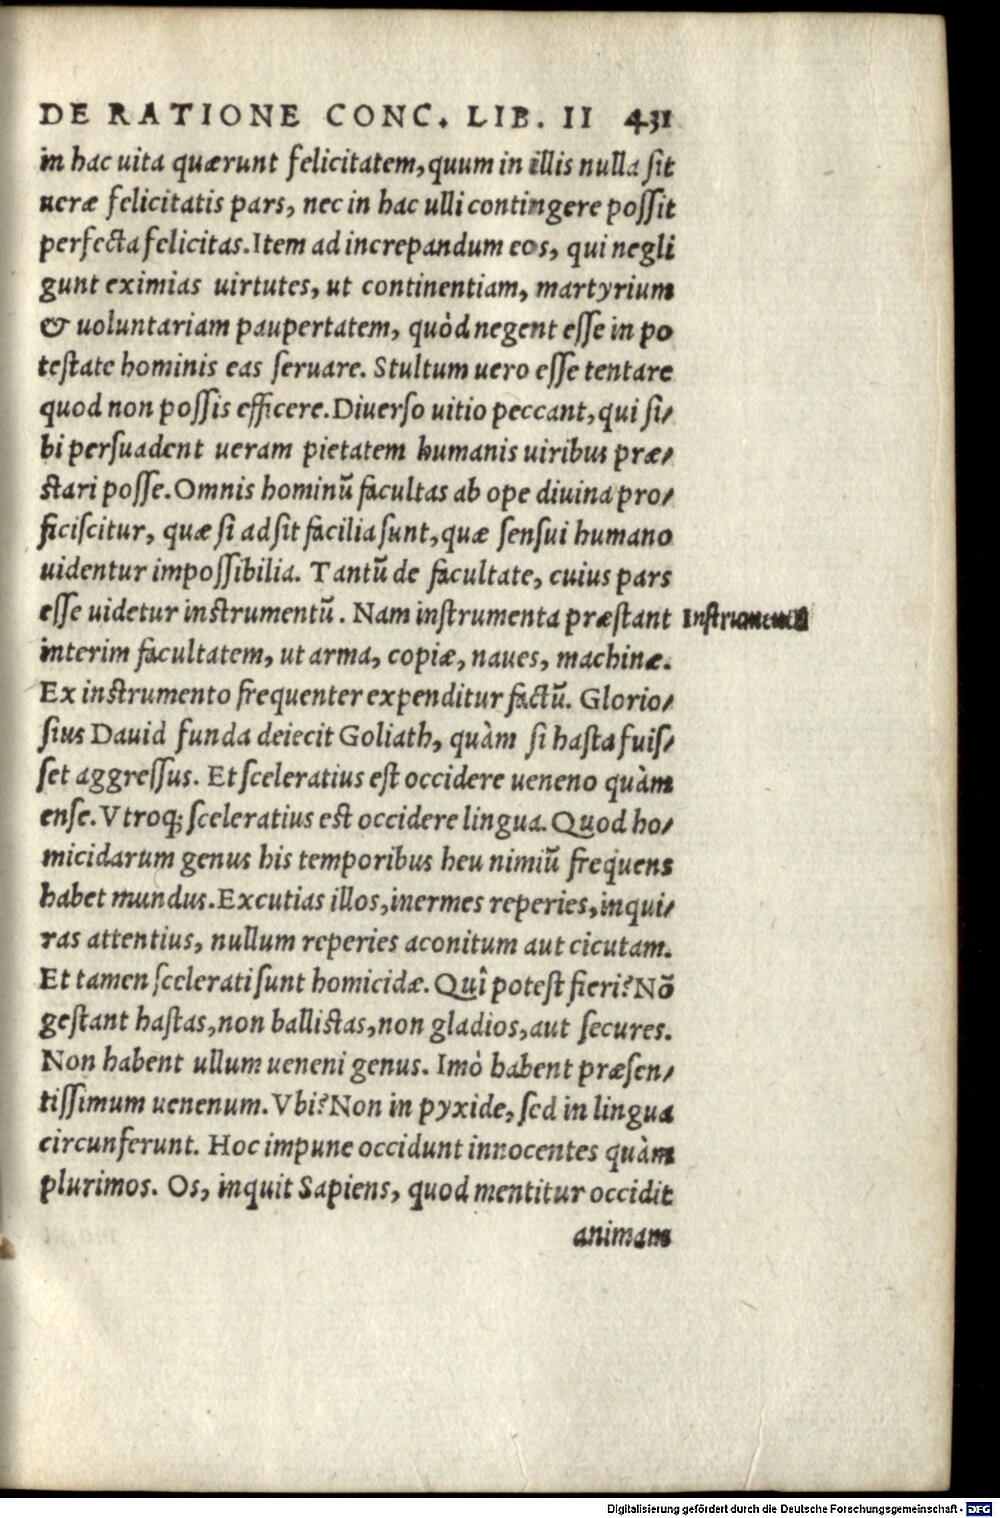 DE RATIONE CONC. LIB. II 431
in hac uita quærunt felicitatem, quum in illis nulla sit
ueræ felicitatis pars, nec in hac ulli contingere possit
perfecta felicitas. Item ad increpandum eos, qui negli
gunt eximias uirtutes, ut continentiam, martyrium
& uoluntariam paupertatem, quòd negent esse in po
testate hominis eas seruare. Stultum uero esse tentare
quod non possis efficere. Diuerso uitio peccant, qui si/
bi persuadent ueram pietatem humanis uiribus præ/
stari posse. Omnis hominū facultas ab ope diuina pro/
ficiscitur, quæ si adsit facilia sunt, quæ sensui humano
uidentur impossibilia. Tantū de facultate, cuius pars
esse uidetur instrumentū. Nam instrumenta præstant
interim facultatem, ut arma, copiæ, naues, machinæ.
Ex instrumento frequenter expenditur factū. Glorio/
sius Dauid funda deiecit Goliath, quàm si hasta fuis/
set aggressus. Et sceleratius est occidere ueneno quàm
ense. Vtroq; sceleratius est occidere lingua. Quod ho/
micidarum genus his temporibus heu nimiū frequens
habet mundus. Excutias illos, inermes reperies, inqui/
ras attentius, nullum reperies aconitum aut cicutam.
Et tamen scelerati sunt homicidæ. Quî potest fieri? Nō
gestant hastas, non ballistas, non gladios, aut secures.
Non habent ullum ueneni genus. Imò habent præsen/
tissimum uenenum. Vbi? Non in pyxide, sed in lingua
circunferunt. Hoc impune occidunt innocentes quàm
plurimos. Os, inquit Sapiens, quod mentitur occidit
animam
Digitalisierung gefördert durch die Deutsche Forschungsgemeinschaft - DFG